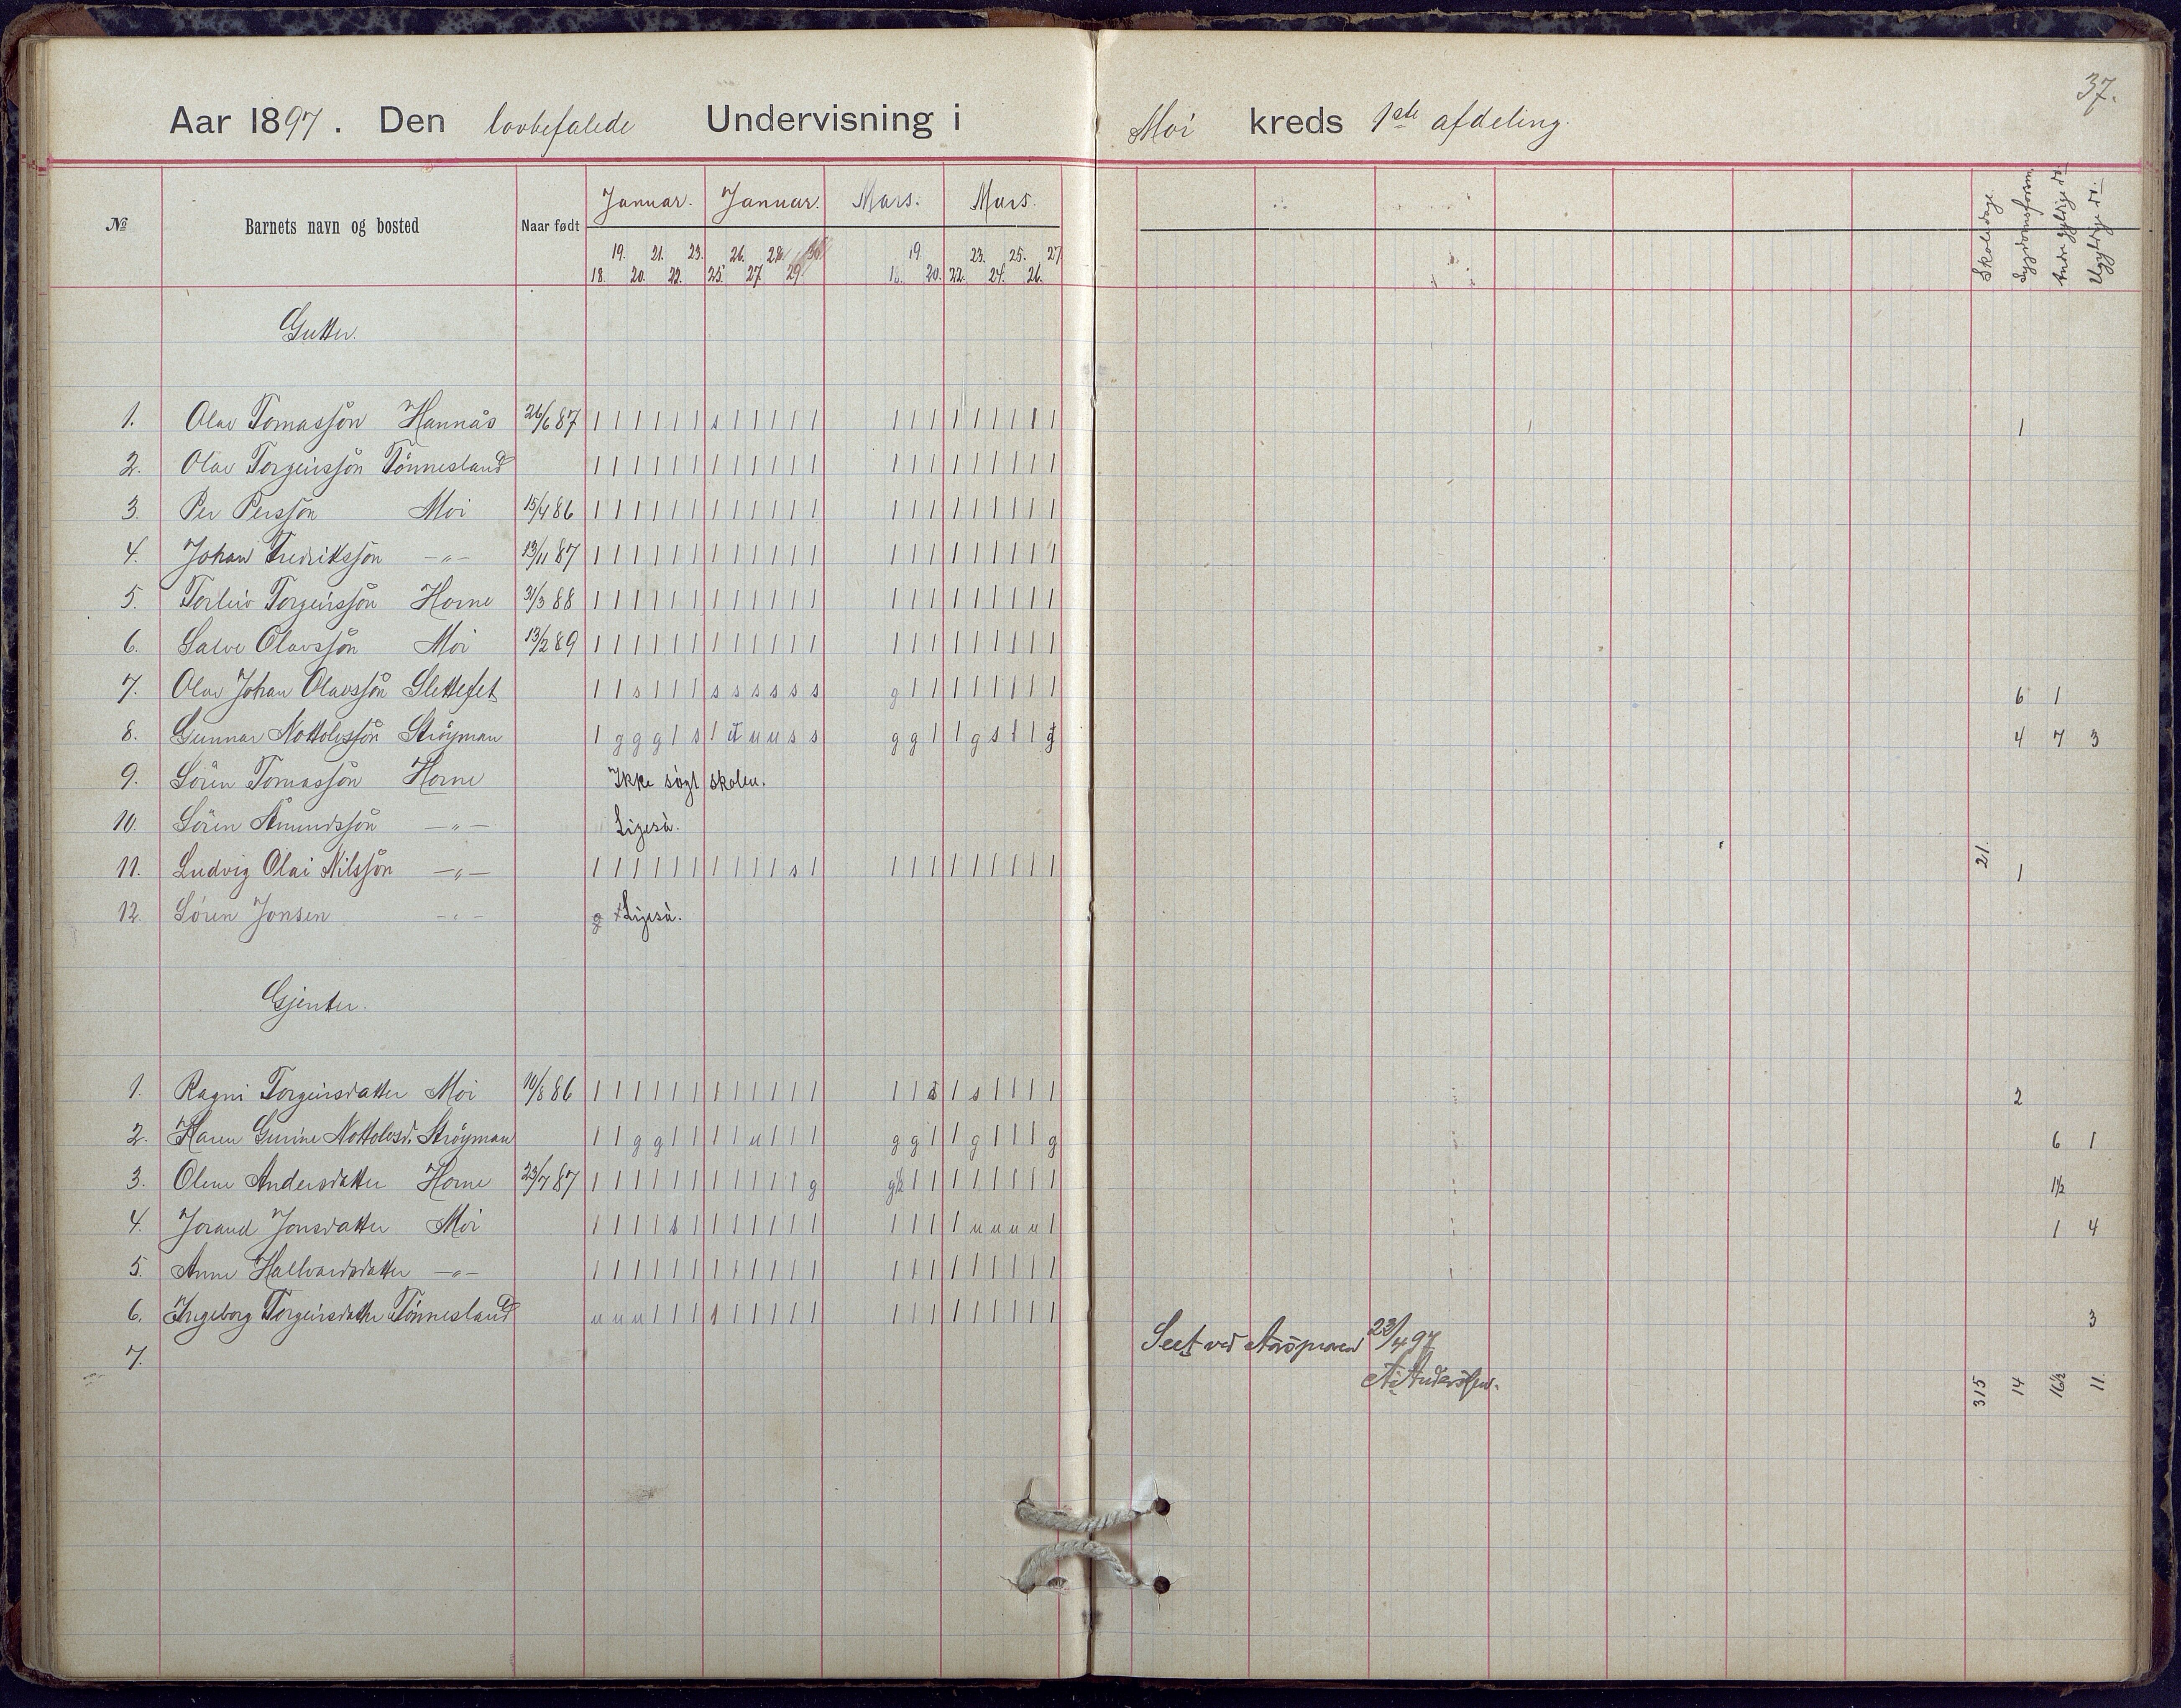 37.
Aar 1897. Den lovbefalede Undervisning i Moi kreds 1ste afdeling.
№ Barnets navn og bosted Naar født Januar. Januar. Mars. Mars. Skoledage. Sygdomsforsøm. Andre gyldige do. Ugyldige do.
19. 21. 23. 26. 28. 30 19. 23. 25. 27
18. 20. 22. 25. 27. 29. 18. 20. 22. 24. 26.
Gutter.
1. Olav Tomassøn Hannås 26/6 87 | | | | | | s | | | | | | | | | | | | | | 1
2. Olav Torgeirssøn Tønnesland | | | | | | | | | | | | | | | | | | | | |
3. Per Perssøn Moi 15/4 86 | | | | | | | | | | | | | | | | | | | | |
4. Johan Fredrikssøn -"- 13/11 87 | | | | | | | | | | | | | | | | | | | | |
5. Torleiv Torgeirssøn Horne 31/3 88 | | | | | | | | | | | | | | | | | | | | |
6. Salve Olavssøn Moi 13/2 89 | | | | | | | | | | | | | | | | | | | | |
7. Olav Johan Olavssøn Slettefet | | s | | | s s s s s s g | | | | | | | | 6 1
8. Gunnar Nottolvssøn Strøyman | g g g | s | u u u s s g g | | g s | | g 4 7 3
9. Søren Tomassøn Horne Ikke søgt skolen.
10. Søren Åmundssøn -"- Ligeså.
11. Ludvig Olai Nilssøn -"- | | | | | | | | | | s | | | | | | | | | | 21. 1
12. Søren Jonsen -"- g Ligeså.
Gjenter.
1. Ragni Torgeirsdatter Moi 10/8 86 | | | | | | | | | | | | | | s | s | | | | 2
2. Karen Gurine Nottolvsd. Strøyman | | g g | | | | u | | | g g | | g | | | g 6 1
3. Olene Andersdatter Horne 23/7 87 | | | | | | | | | | | g g½ | | | | | | | | 1½
4. Jorand Jonsdatter Moi | | | | s | | | | | | | | | | | u u u u | 1 4
5. Anne Hallvardsdatter -"- | | | | | | | | | | | | | | | | | | | | |
6. Ingeborg Torgeirsdatter Tønnesland u u u | | | | | | | | | | | | | | | | | | 3
7.
Seet ved Årsprøven 23/4 97
A. Anderssen.
315 14 16½ 11.